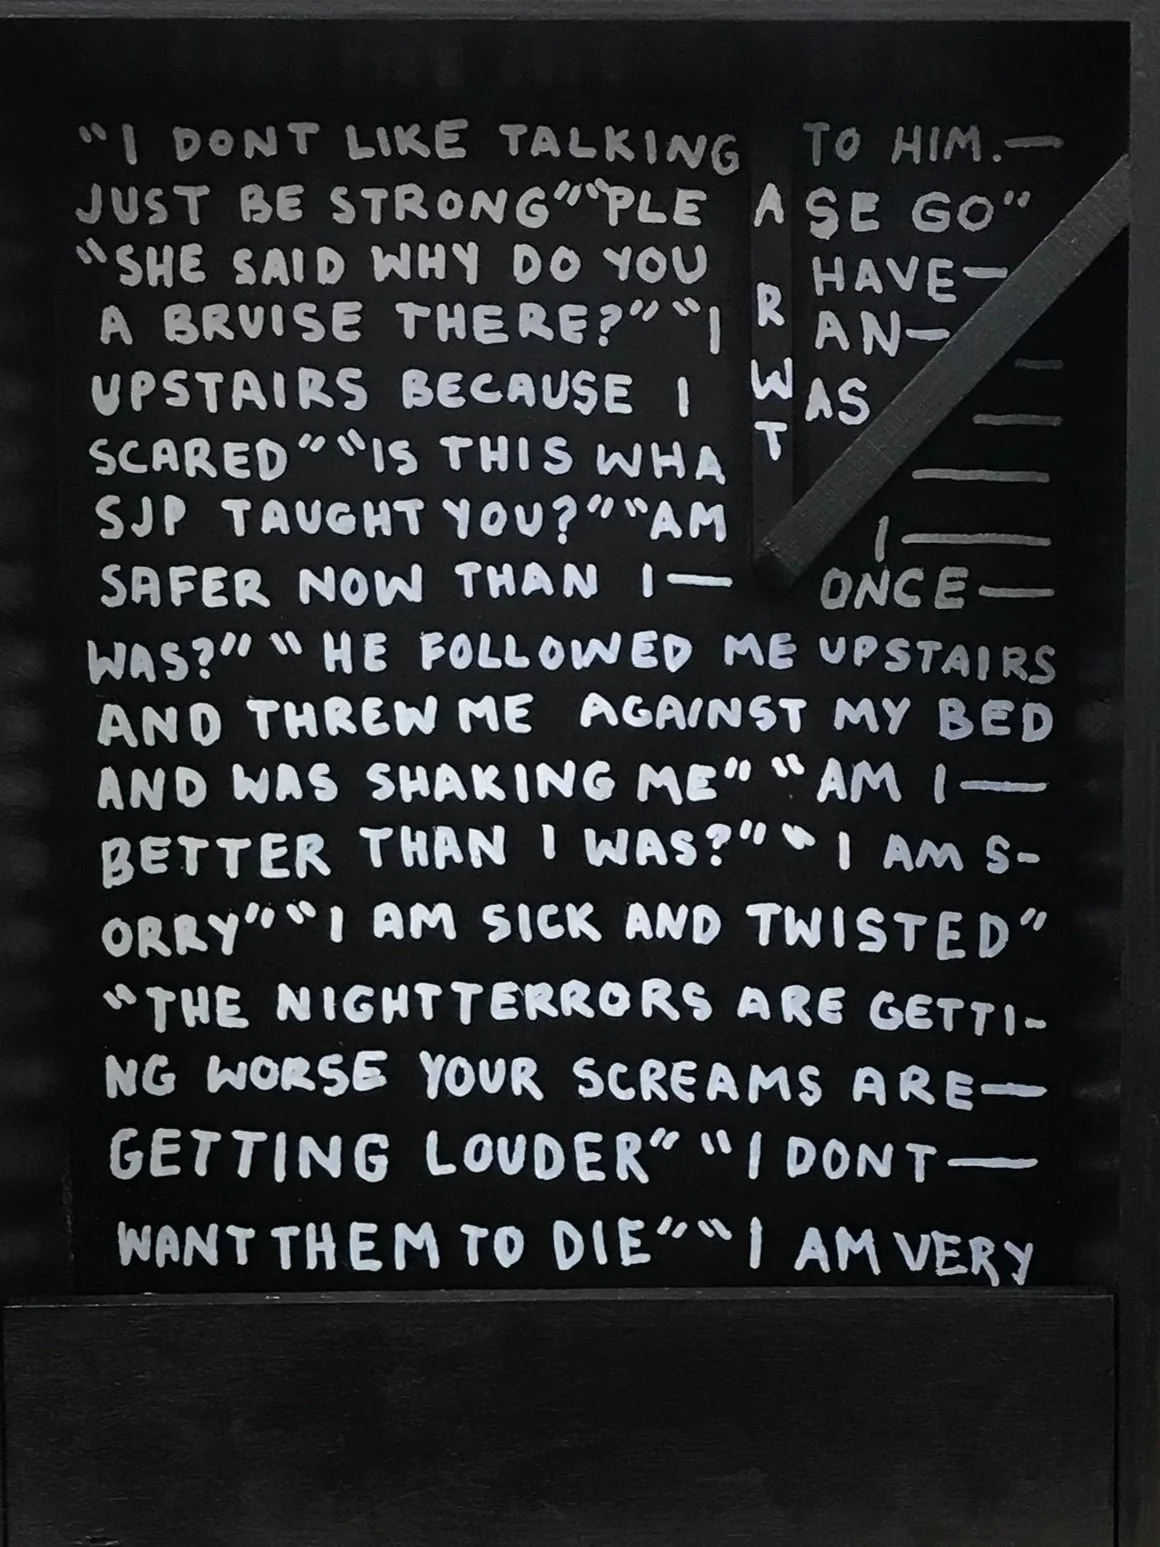 "I DONT LIKE TALKING TO HIM.—
JUST BE STRONG" "PLEASE GO"
"SHE SAID WHY DO YOU HAVE—
A BRUISE THERE?" "I RAN—
UPSTAIRS BECAUSE I WAS —
SCARED" "IS THIS WHAT —
SJP TAUGHT YOU?" "AM I —
SAFER NOW THAN I— ONCE—
WAS?" "HE FOLLOWED ME UPSTAIRS
AND THREW ME AGAINST MY BED
AND WAS SHAKING ME" "AM I—
BETTER THAN I WAS?" "I AM S-
ORRY" "I AM SICK AND TWISTED"
"THE NIGHT TERRORS ARE GETTI-
NG WORSE YOUR SCREAMS ARE—
GETTING LOUDER" "I DONT—
WANT THEM TO DIE" "I AM VERY